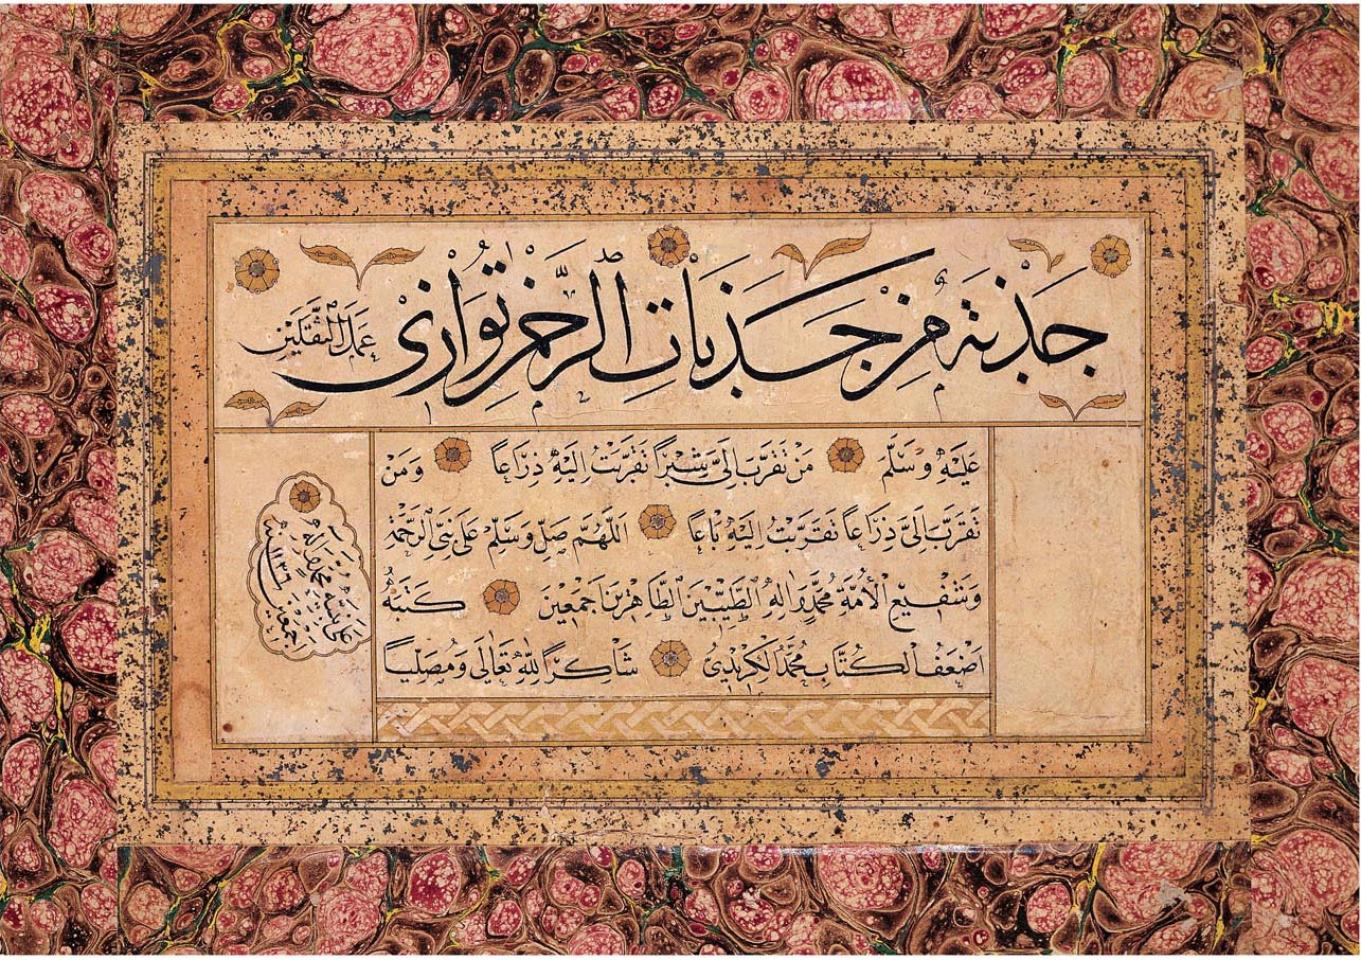 جَذْبَةٌ مِنْ جَذَبَاتِ الرَّحْمٰنِ تُوَازِي عَمَلَ الثَّقَلَيْنِ
عَلَيْهِ وَسَلَّمَ مَنْ تَقَرَّبَ اِلَيَّ شِبْرًا تَقَرَّبْتُ اِلَيْهِ ذِرَاعًا وَمَنْ
تَقَرَّبَ اِلَيَّ ذِرَاعًا تَقَرَّبْتُ اِلَيْهِ بَاعًا اَللّٰهُمَّ صَلِّ وَسَلِّمْ عَلٰى نَبِيِّ الرَّحْمَةِ
وَشَفِيعِ الْأُمَّةِ مُحَمَّدٍ وَاٰلِهِ الطَّيِّبِينَ الطَّاهِرِينَ اَجْمَعِينَ كَتَبَهُ
اَضْعَفُ الْكُتَّابِ مُحَمَّدُ الْكِرِيدِيُّ شَاكِرًا لِلّٰهِ تَعَالٰى وَمُصَلِّيًا
عَلٰى نَبِيِّهِ مُحَمَّدٍ وَاٰلِهِ
اَجْمَعِينَ